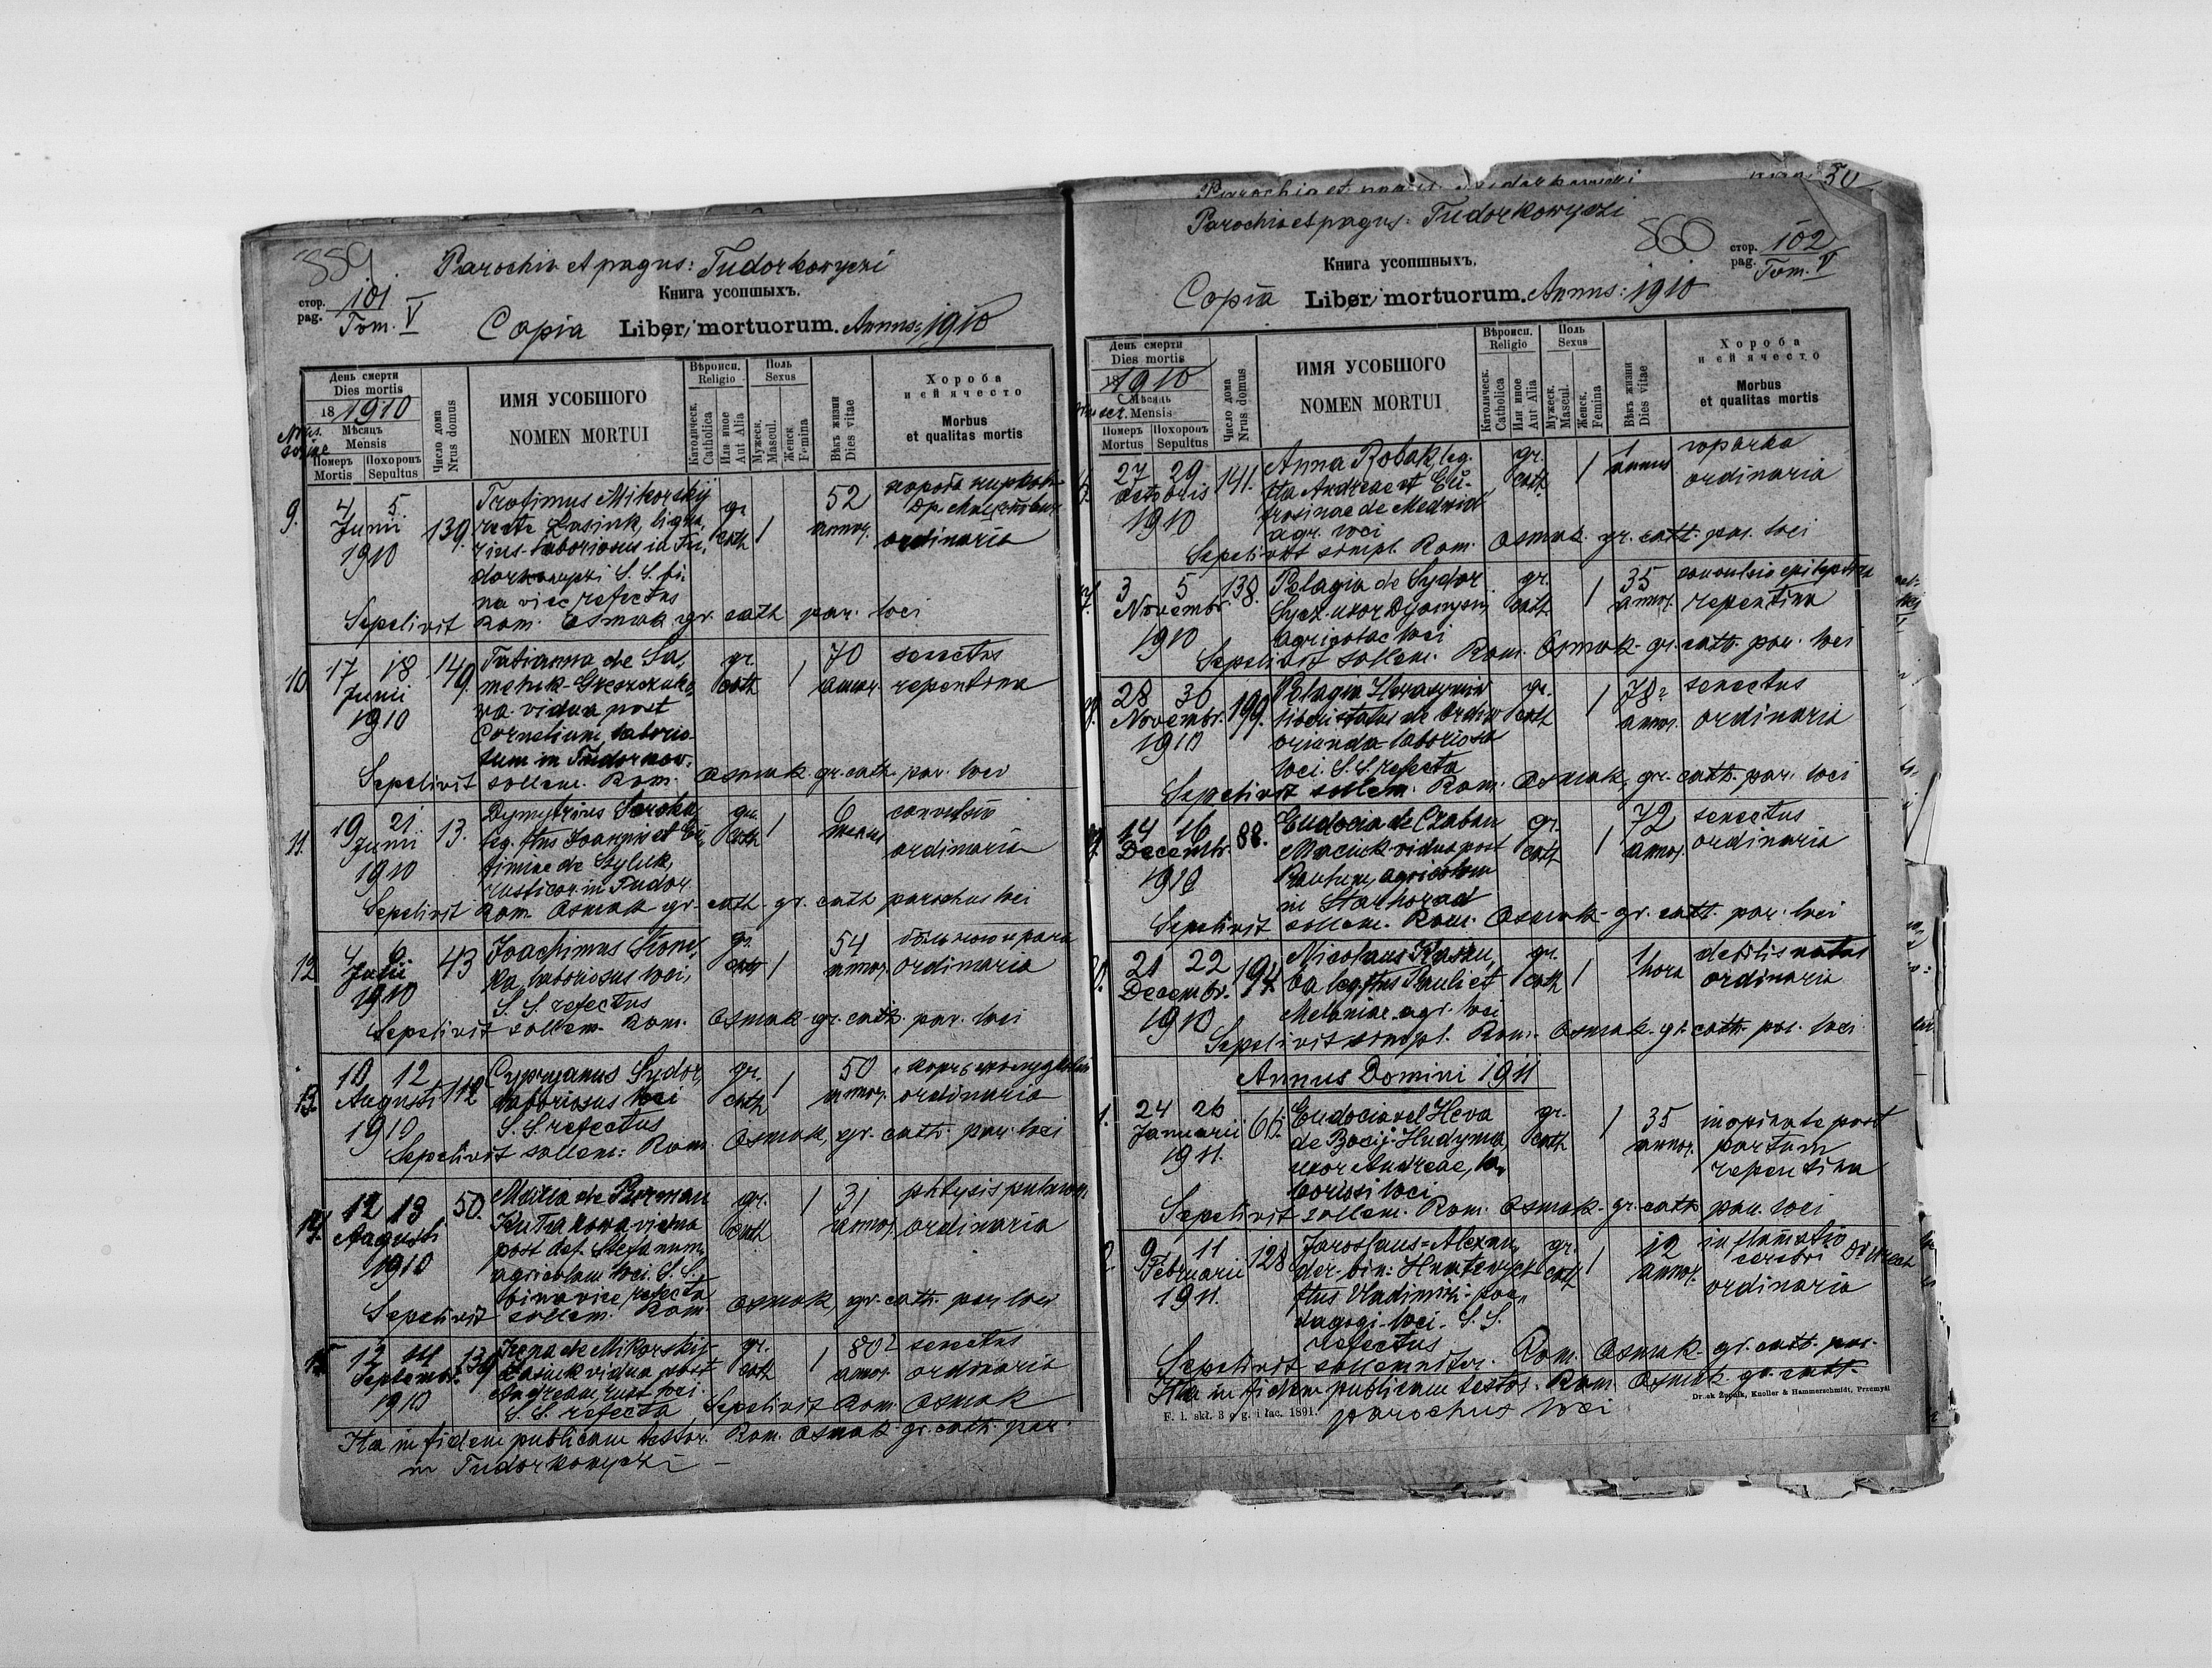 859
Parochia et pagus: Tudorkowyczi
стор. 101
pag. Tom. V
Книга усопшыхъ.
Copia Liber mortuorum. Annus: 1910
День смерти
Dies mortis
18 1910
Мѣсяцъ
Mensis
Померъ Похоронъ
Mortis Sepultus
Число дома
Nrus domus
ИМЯ УСОБШОГО
NOMEN MORTUI
Вѣроисп.
Religio
Католическ.
Catholica
Или иное
Aut Alia
Полъ
Sexus
Мужеск.
Mascul.
Женск
Femina
Вѣкъ жизни
Dies vitae
Хороба
и ей ячесто
Morbus
et qualitas mortis
9. 4 5 Trofimus Mikorskij gr. 52
Junii 139. recte Lasiuk, cath 1 annor.
1910 laboriosus in Tu- ordinaria
dorkowyczi S. S. bi
na vice refectus
Sepelivit Rom. Osmak gr. cath. par. loci
10 17 18 149. Tatianna de Sa- gr. 1 70 senectus
Junii cath annor. repentina
1910 vidua post
Cornelium, laborio-
sum in Tudorkow.
Sepelivit sollem. Rom. Osmak. gr. cath. par. loci
11. 19 21 13. Dymytrius Soroka gr. 1 6 convulsio
Junii leg. ftus Joannis et Eu cath ordinaria
1910 fimiae de Szyluk,
rusticor. in Tudor
Sepelivit Rom. Osmak gr. cath. gr. cath parochus loci
12 4 6 43 Joachimus gr. 54
Julii laboriosus loci, cath 1 annor. ordinaria
1910 S. S. refectus
Sepelivit sollem. Rom. Osmak gr. cath. par. loci
13. 10 12 112 Cypryanus Sydor, gr. 1 50
Augusti laboriosus loci cath annor. ordinaria
1910 S. S. refectus
Sepelivit sollem: Rom. Osmak, gr. cath. par. loci
14. 12 13 50. Maria de Purman gr. 1 31 phtysis pulmon
Augusti vidua cath annor. ordinaria
1910 post def. Stefanum,
agricolam loci. S. S.
bina vice refecta
Sepelivit sollem. Rom. Osmak, gr. cath. par loci
15 12 14 139 Irena de Mikorskij- gr. 1 80? senectus
Septembr. Lasiuk vidua post cath annor. ordinaria
1910 Andream rust. loci.
S. S. refecta Sepelivit Rom. Osmak
Ita in fidem publicam testor. Rom. Osmak gr. cath. par.
in Tudorkowyczi
50
Parochia et pagus: Tudorkowyczi
860
стор. 102
pag. Tom. V
Книга усопшыхъ.
Copia Liber mortuorum. Annus: 1910
День смерти
Dies mortis
1910
Мѣсяць
Mensis
Померъ Похоронъ
Mortus Sepultus
Число дома
Nrus domus
ИМЯ УСОБШОГО
NOMEN MORTUI
Вѣроисп.
Religio
Католическ.
Catholica
Или иное
Aut Alia
Полъ
Sexus
Мужеск.
Mascul.
Женск.
Femina
Вѣкъ жизни
Dies vitae
Хороба
и ей ячесто
Morbus
et qualitas mortis
27 29 141. Anna Robak leg. gr. 1 1
Octobris fta Andreae et Eu- cath. annus ordinaria
1910 frosinae de Medwid
agr. loci
Sepelivit simpl. Rom. Osmak. gr. cath. par. loci
3 5 138. Pelagia de Sydor gr. 1 35 convulsio epileptica
Novembr. uxor Dyonysii, cath. annor. repentina
1910 agricolae loci
Sepelivit sollem. Rom. Osmak gr. cath. par. loci
28 30 199. Pelagia gr. 1 78? senectus
Novembr. cath annor. ordinaria
1910 orianda laboriosa
loci. S. S. refecta
Sepelivit sollem. Rom. Osmak, gr. cath. par. loci
14 16 88. Eudocia de Czaban gr. 1 72 senectus
Decembr. Maciuk vidua post cath annor. ordinaria
1910 agricolam
in Starhorad
Sepelivit sollem. Rom. Osmak gr. cath. par. loci
21 22 194. Nicolaus gr. 1 1 debilis natus
Decembr. leg. ftus Pauli et cath hora ordinaria
1910 Melaniae agr. loci
Sepelivit simpl. Rom. Osmak gr. cath. par. loci
Annus Domini 1911
1. 24 26 66. Eudocia vel Heva gr. 1 35 post
Januarii de Bocij Hudyma, cath annor. partum
1911. uxor Andreae, la- repentina
boriosi loci
Sepelivit sollem. Rom. Osmak gr. cath par. loci
2. 9 11 128 Jaroslaus=Alexan- gr. 1 12 inflamatio
Februarii der bin: cath annor. cerebri
1911. ftus Vladimiri pae- ordinaria
dagogi loci. S. S.
refectus
Sepelivit sollemniter. Rom. Osmak gr. cath. par.
Ita in fidem publicam testor. Rom. Osmak gr. cath.
parochus loci
F. 1. skł. 3 g g. i łac. 1891.
Dr.ek Żupnik, Knoller & Hammerschmidt, Przemyśl